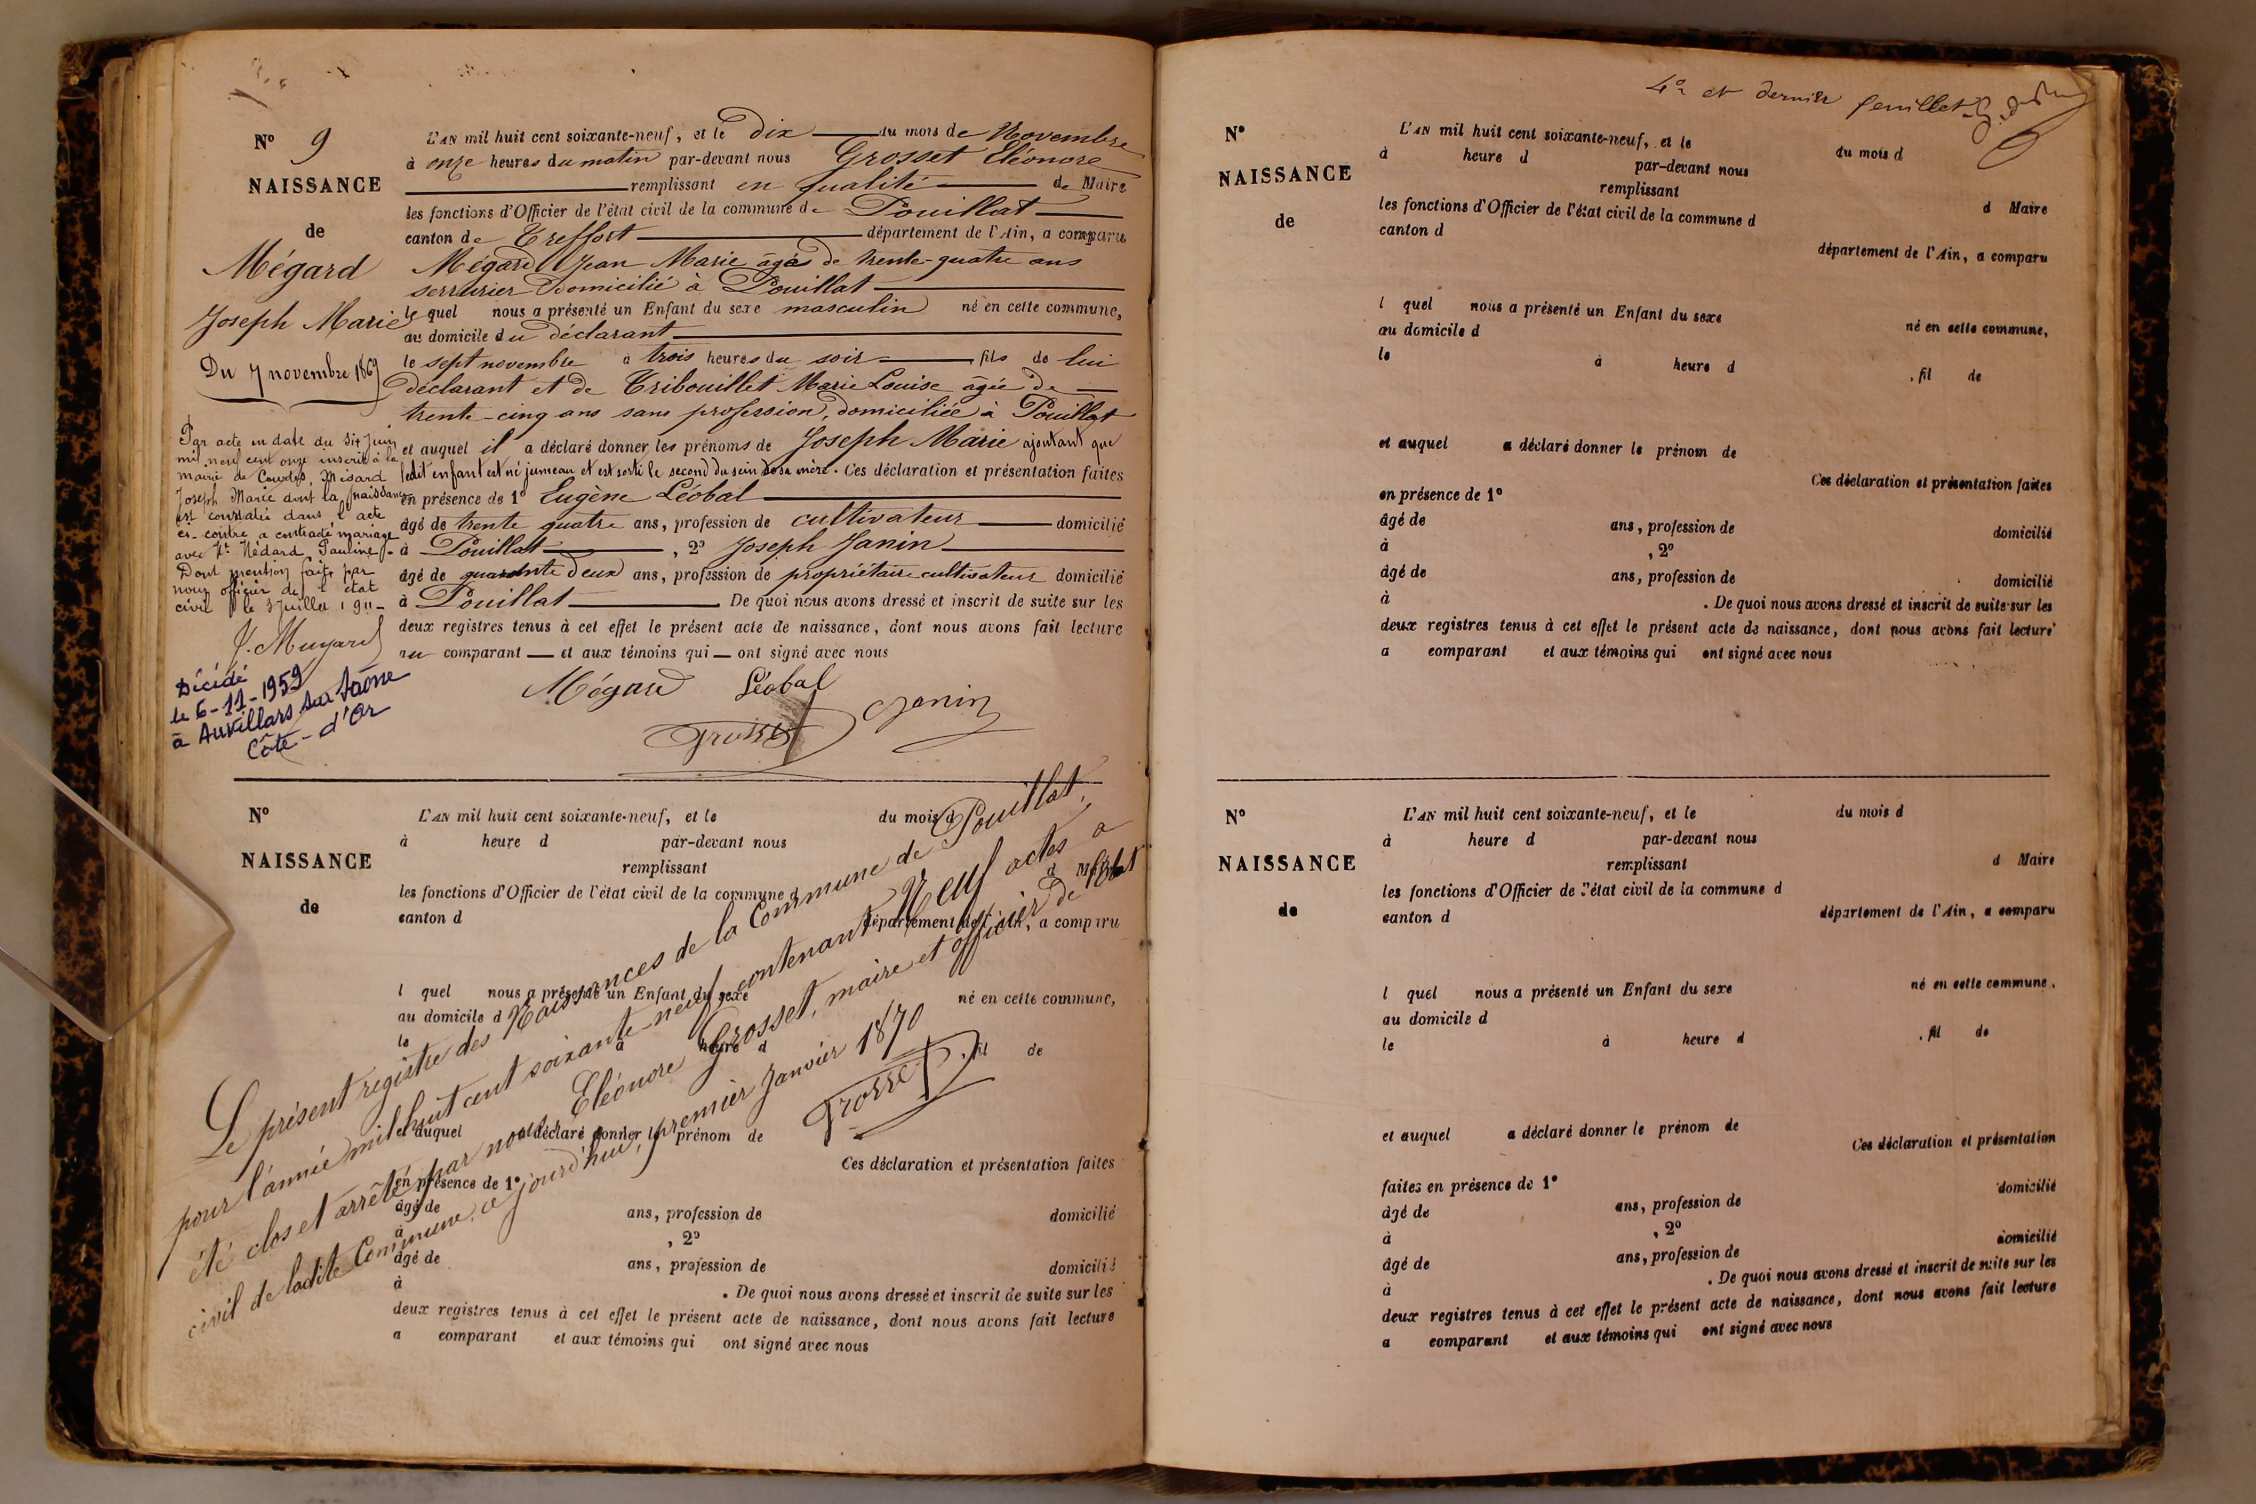 N° 9
NAISSANCE
de
Mégard
Joseph Marie
Du 7 novembre 1869
Par acte en date du six juin
mil neuf cent onze inscrit à la
mairie de Mégard
Joseph Marie dont la naissance
est constatée dans l'acte
ci-contre a contracté mariage
avec Pauline
Dont mention faite par
nous officier de l'état
civil le 3 Juillet 1911
J. Muyard
Décédé
le 6-11-1959
à Auvillars sur Saône
Côte-d'Or
L'AN mil huit cent soixante-neuf, et le dix du mois de Novembre
à onze heures du matin par-devant nous Grosset Eléonore
remplissant en qualité de Maire
les fonctions d'Officier de l'état civil de la commune de Pouillat
canton de Treffort département de l'Ain, a comparu
Mégard Jean Marie âgé de trente-quatre ans
serrurier Domicilié à Pouillat
le quel nous a présenté un Enfant du sexe masculin né en cette commune,
au domicile du déclarant
le sept novembre à trois heures du soir fils de lui
déclarant et de Tribouillet Marie Louise âgée de
trente-cinq ans sans profession, domiciliée à Pouillat
et auquel il a déclaré donner les prénoms de Joseph Marie ajoutant que
ledit enfant est né jumeau et est sorti le second du sein de sa mère. Ces déclaration et présentation faites
en présence de 1° Eugène Léobal
âgé de trente quatre ans, profession de cultivateur domicilié
à Pouillat, 2° Joseph Janin
âgé de quarante deux ans, profession de propriétaire cultivateur domicilié
à Pouillat De quoi nous avons dressé et inscrit de suite sur les
deux registres tenus à cet effet le présent acte de naissance, dont nous avons fait lecture
au comparant et aux témoins qui ont signé avec nous
Mégard Léobal Janin
Grosset
N°
NAISSANCE
de
L'AN mil huit cent soixante-neuf, et le du mois d
à heure d par-devant nous
remplissant d Maire
les fonctions d'Officier de l'état civil de la commune d
canton d département de l'Ain, a comparu
l quel nous a présenté un Enfant du sexe né en cette commune,
au domicile d
le à heure d , fil de
et auquel a déclaré donner le prénom de
Ces déclaration et présentation faites
en présence de 1°
âgé de ans, profession de domicilié
à , 2°
âgé de ans, profession de domicilié
à . De quoi nous avons dressé et inscrit de suite sur les
deux registres tenus à cet effet le présent acte de naissance, dont nous avons fait lecture
a comparant et aux témoins qui ont signé avec nous
Le présent registre des Naissances de la Commune de Pouillat,
pour l'année mil huit cent soixante-neuf, contenant Neuf actes a
été clos et arrêté par nous Eléonore Grosset, maire et officier de l'état
civil de ladite Commune, ce jourd'hui, premier Janvier 1870
Grosset
4e et dernier feuillet
N°
NAISSANCE
de
L'AN mil huit cent soixante-neuf, et le du mois d
à heure d par-devant nous
remplissant d Maire
les fonctions d'Officier de l'état civil de la commune d
canton d département de l'Ain, a comparu
l quel nous a présenté un Enfant du sexe né en cette commune,
au domicile d
le à heure d , fil de
et auquel a déclaré donner le prénom de
Ces déclaration et présentation faites
en présence de 1°
âgé de ans, profession de domicilié
à , 2°
âgé de ans, profession de domicilié
à . De quoi nous avons dressé et inscrit de suite sur les
deux registres tenus à cet effet le présent acte de naissance, dont nous avons fait lecture
a comparant et aux témoins qui ont signé avec nous
N°
NAISSANCE
de
L'AN mil huit cent soixante-neuf, et le du mois d
à heure d par-devant nous
remplissant d Maire
les fonctions d'Officier de l'état civil de la commune d
canton d département de l'Ain, a comparu
l quel nous a présenté un Enfant du sexe né en cette commune,
au domicile d
le à heure d , fil de
et auquel a déclaré donner le prénom de
Ces déclaration et présentation
faites en présence de 1° domicilié
âgé de ans, profession de
à , 2° domicilié
âgé de ans, profession de
à . De quoi nous avons dressé et inscrit de suite sur les
deux registres tenus à cet effet le présent acte de naissance, dont nous avons fait lecture
a comparant et aux témoins qui ont signé avec nous